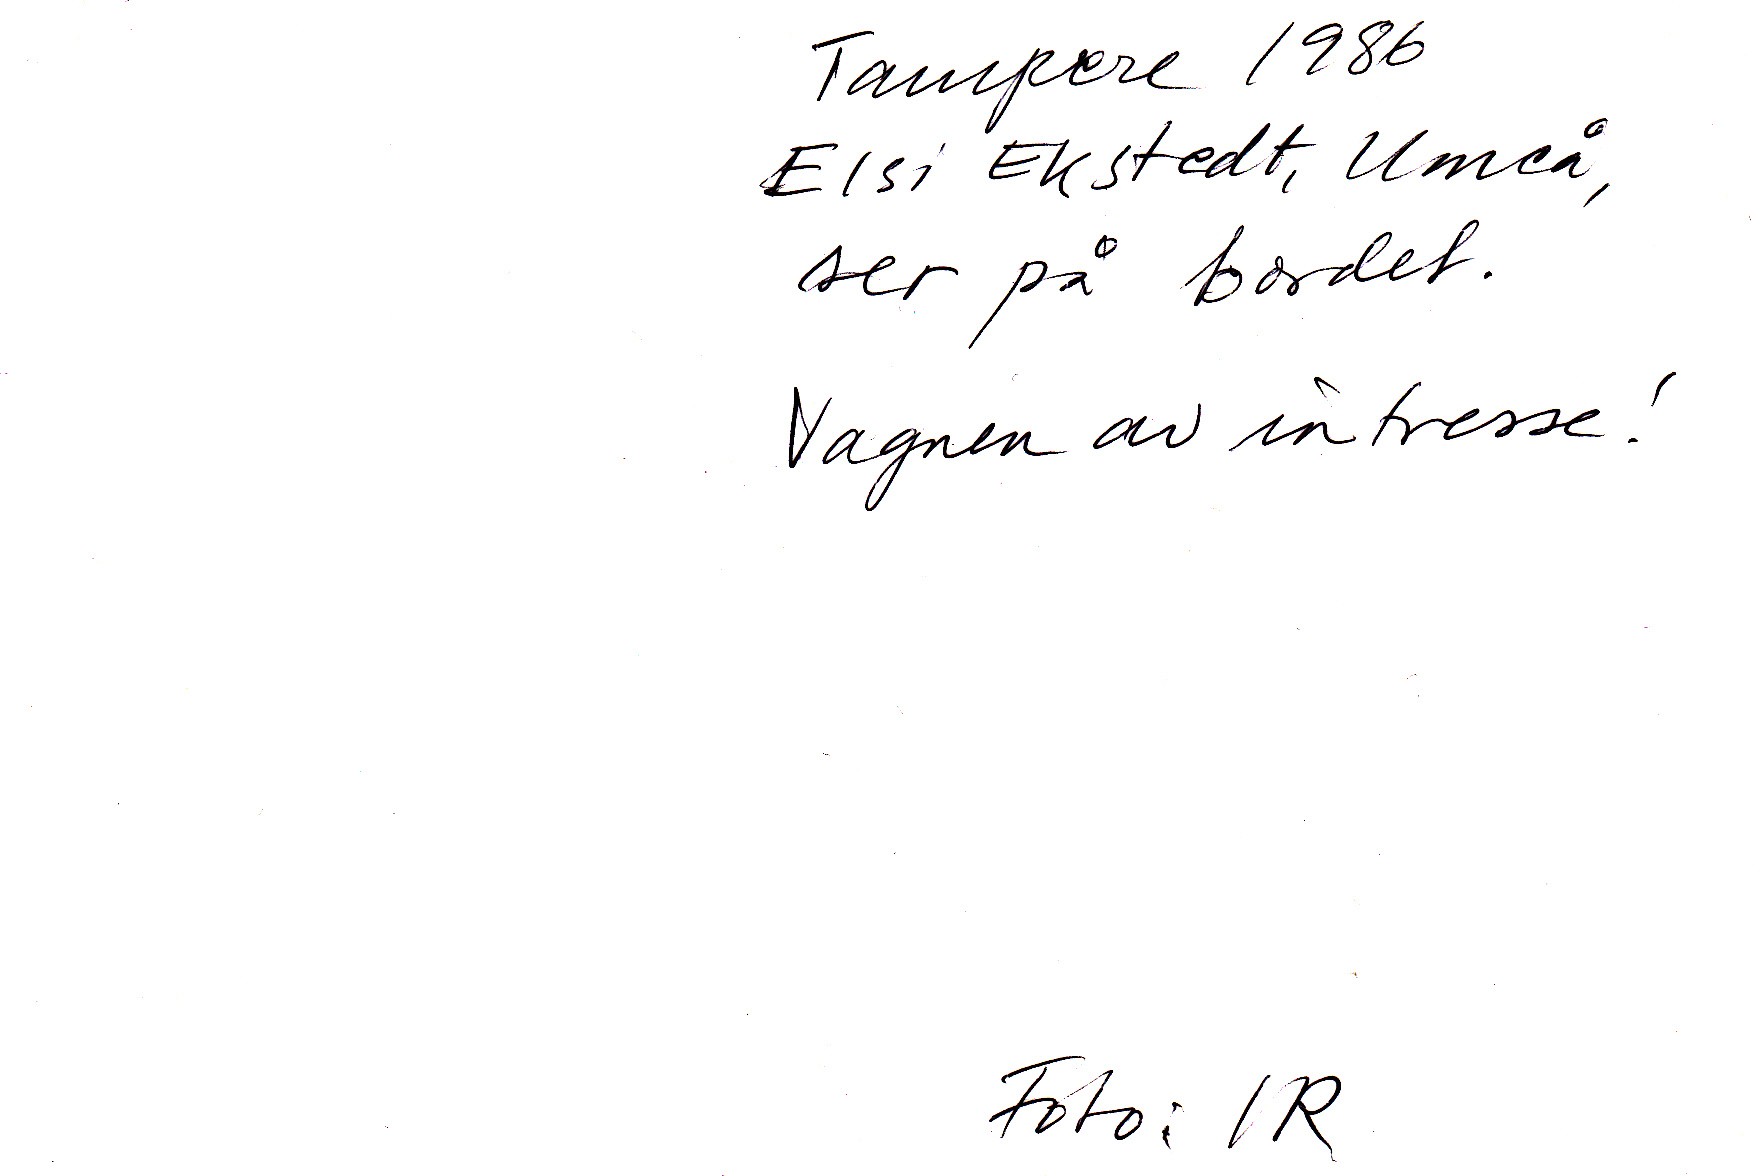 Tampere 1986
Elsi Ekstedt, Umeå,
ser på bordet.
Vagnen av intresse!
Foto: IR